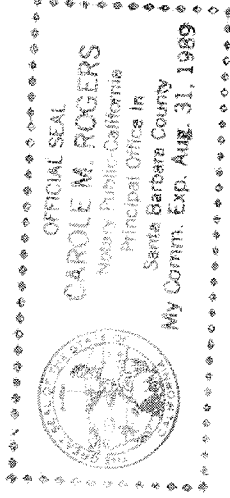 OFFICIAL SEAL
CAROLE M. ROGERS
Notary Public-California
Principal Office In
Santa Barbara County
My Comm. Exp. Aug. 31, 1989